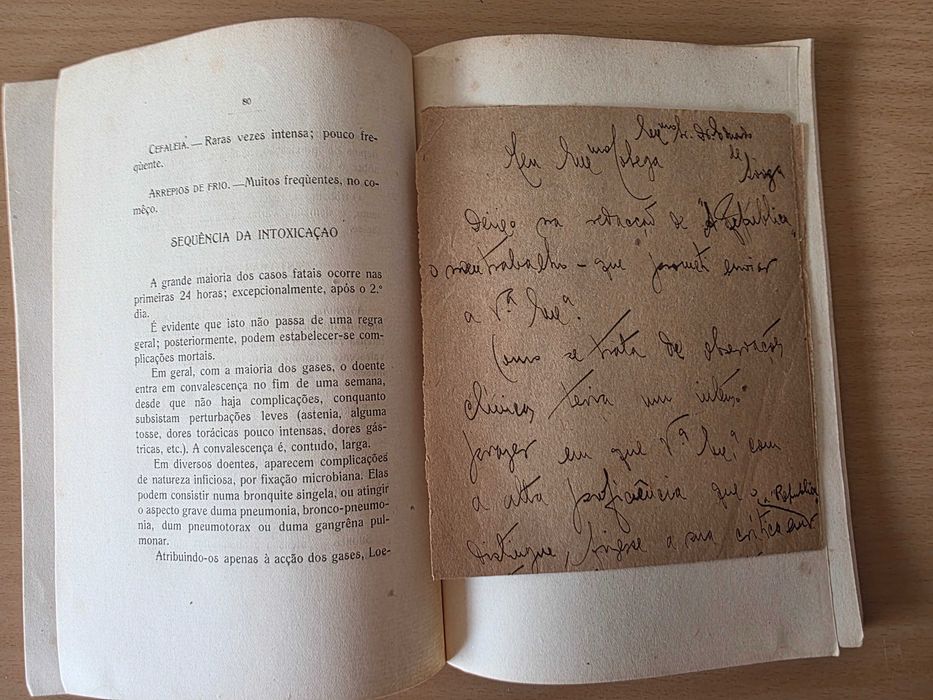 80
CEFALEIA. — Raras vezes intensa; pouco fre-
qüente.
ARREPIOS DE FRIO. — Muitos freqüentes, no co-
mêço.
SEQUÊNCIA DA INTOXICAÇAO
A grande maioria dos casos fatais ocorre nas
primeiras 24 horas; excepcionalmente, após o 2.º
dia.
É evidente que isto não passa de uma regra
geral; posteriormente, podem estabelecer-se com-
plicações mortais.
Em geral, com a maioria dos gases, o doente
entra em convalescença no fim de uma semana,
desde que não haja complicações, conquanto
subsistam perturbações leves (astenia, alguma
tosse, dores torácicas pouco intensas, dores gás-
tricas, etc.). A convalescença é, contudo, larga.
Em diversos doentes, aparecem complicações
de natureza inficiosa, por fixação microbiana. Elas
podem consistir numa bronquite singela, ou atingir
o aspecto grave duma pneumonia, bronco-pneumo-
nia, dum pneumotorax ou duma gangrêna pul-
monar.
Atribuindo-os apenas à acção dos gases, Loe-
Meu Colega
de
Deixo na redacção de "A República"
o meu trabalho — que prometi enviar
a V.ª Ex.ª
Como se trata de observações
clínicas teria um
prazer em que V.ª Ex.ª, com
a alta proficiência que o
n'a República
distingue, fizesse a sua crítica